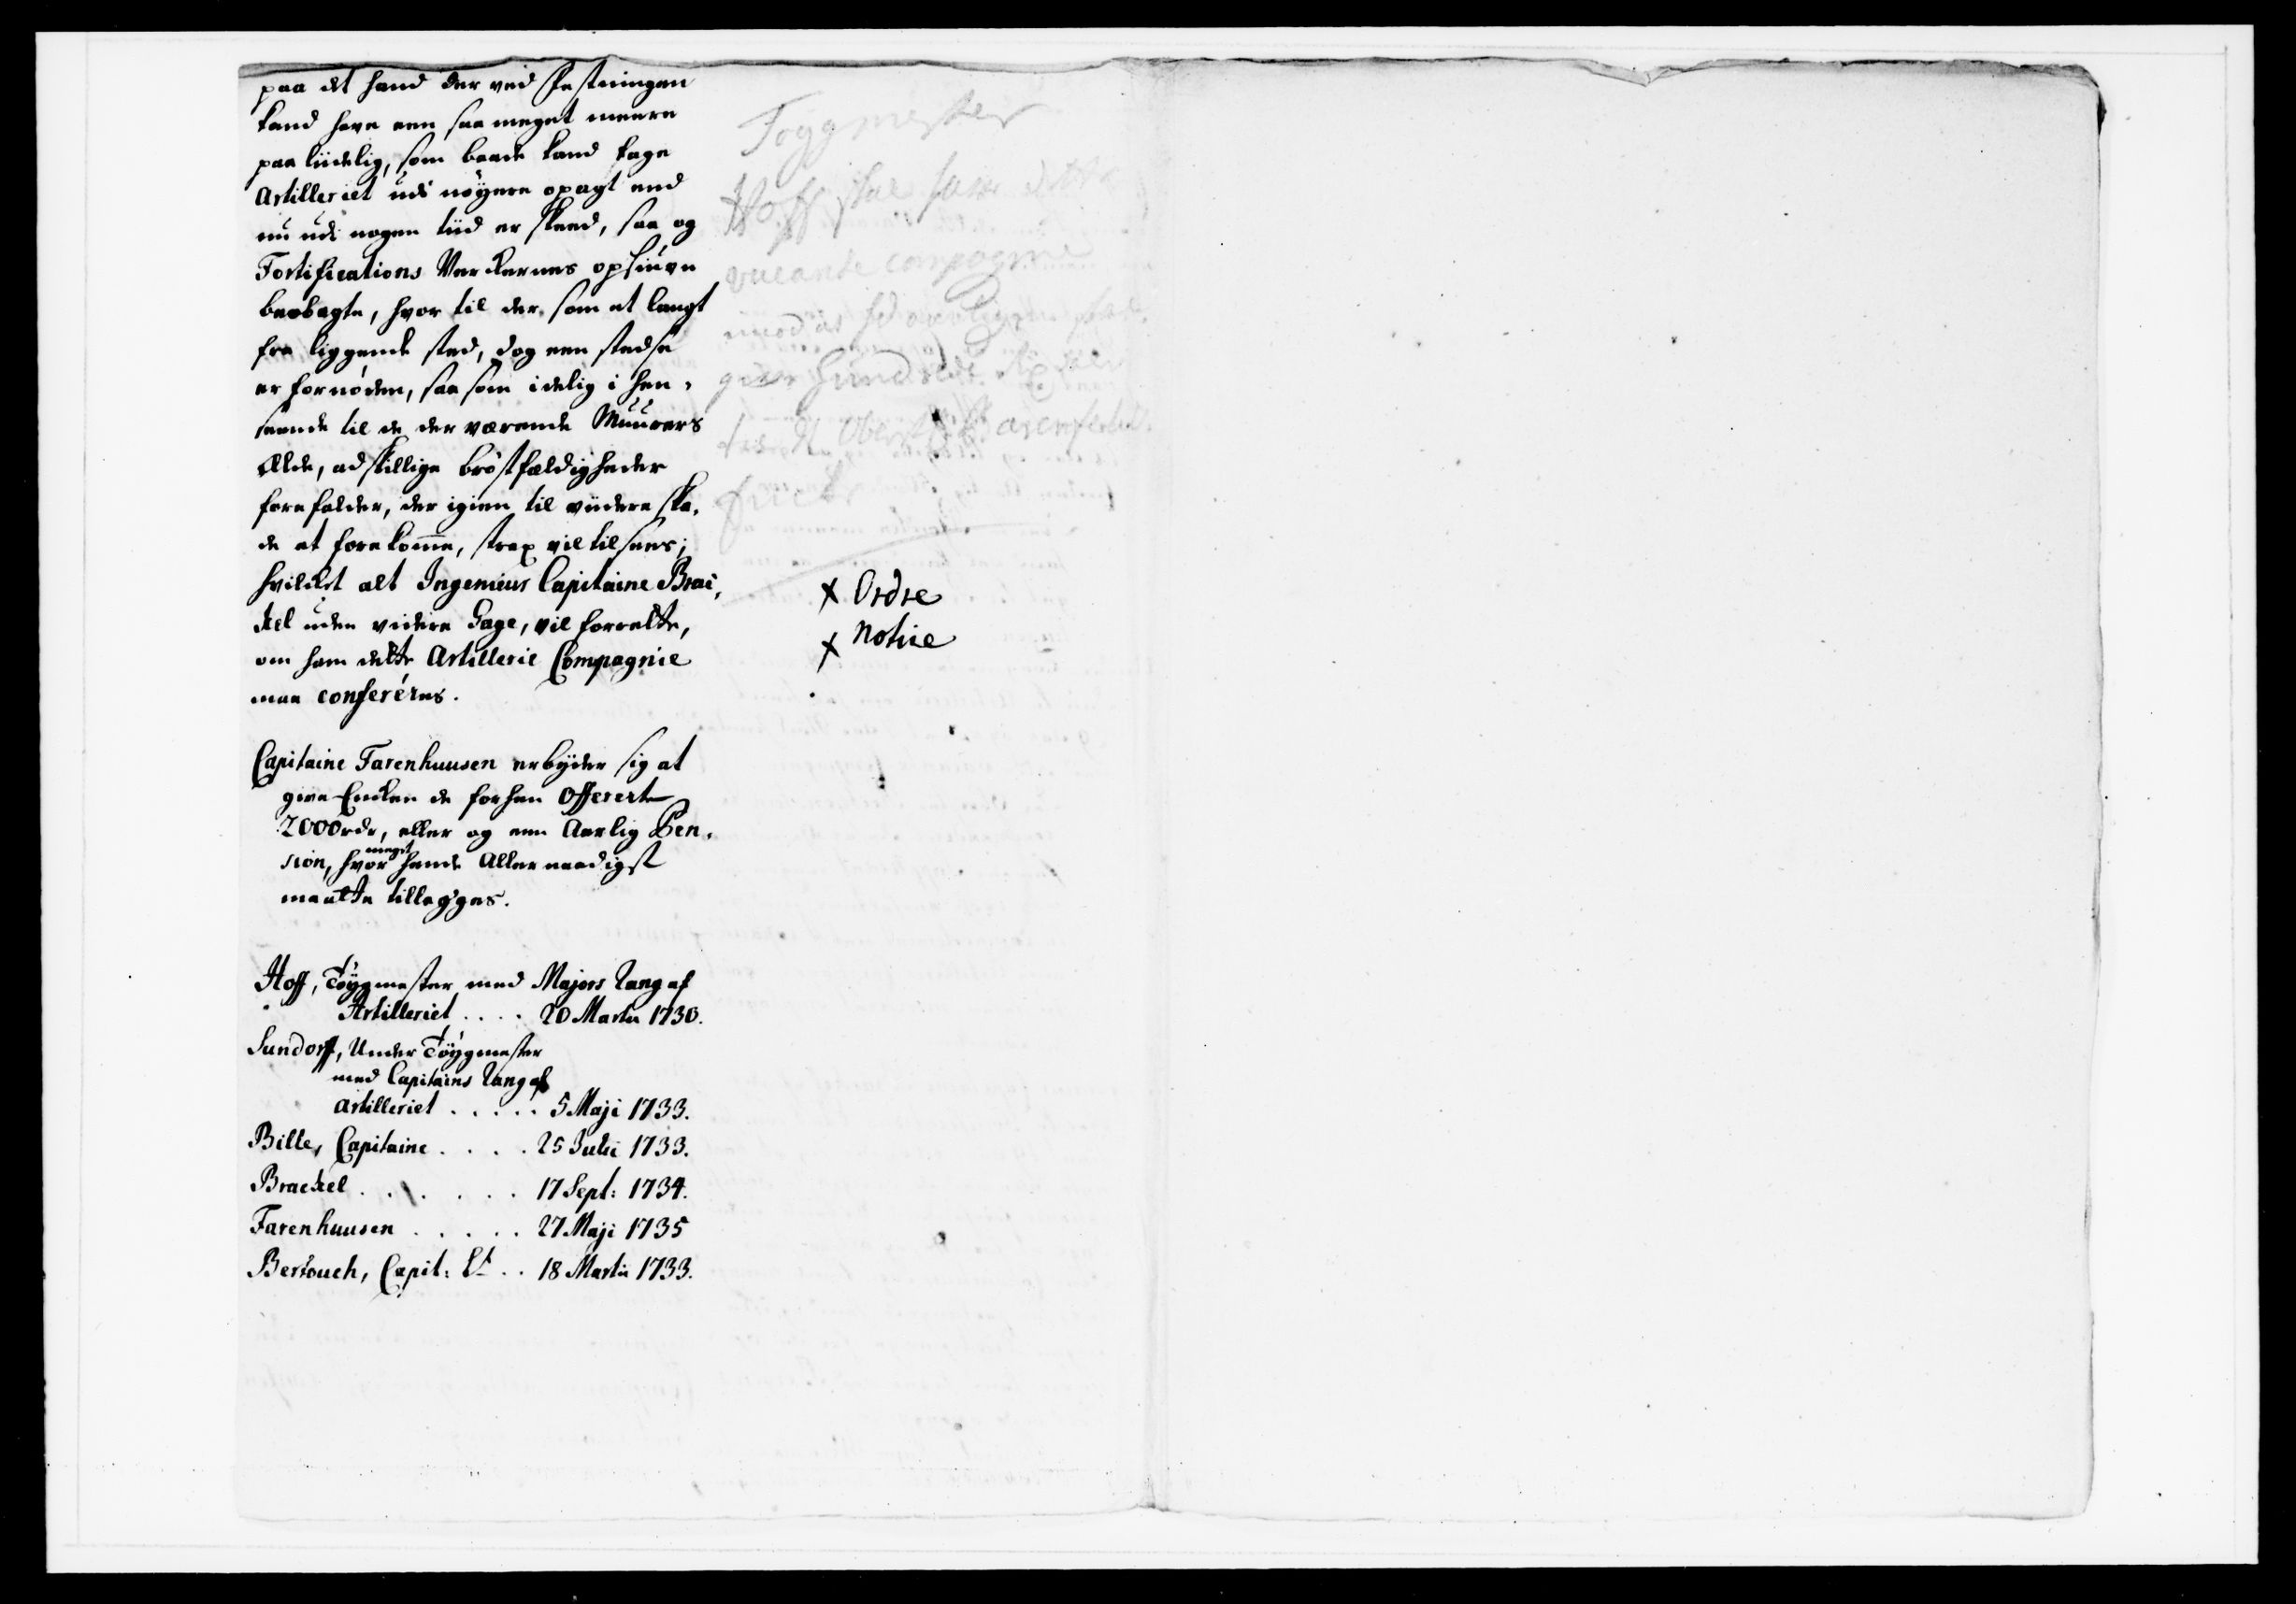 paa det hand der ved Festningen
kand have een saa meget meere
paa liidelig, som baade kand tage
Artilleriet udi nöyere opagt end
nu udi nogen tiid er skeed, saa og
Fortifications Verckernes opsiuvn
beobagte, hvor til der, som et langt
fra liggende sted, dog een stedse
er fornöden, saa som idelig i hen-
seende til de der værende Muurers
Ælde, adskillige bröstfældigheder
forefalder, der igien til viidere ska-
de at forekomme, strax vil tilsees;
hvilcket alt Ingenieur Capitaine Brac-
kel uden videre Gage, vil forrette,
om ham dette Artillerie Compagnie
maa conferéres.
Capitaine Farenhuusen erbyder sig at
give Encken de forhen Offererte
2000 rdr, eller og een Aarlig Pen-
sion, hvor meget hende Allernaadigst
maatte tillegges.
Hoff, Töygmester med Majors Rang af
Artilleriet . . . . 20 Martii 1730.
Sundorff, Under Töygmester
med Capitains Rang af
Artilleriet . . . . . 5 Maji 1733.
Bille, Capitaine . . . . 25 Julii 1733.
Brackel . . . . . . 17 Sept: 1734.
Farenhuusen . . . . . 27 Maji 1735
Bertouch, Capit: Lt . . 18 Martii 1733.
Toygmester
Hoff skal have dette
vacante compagnie
imod at hand aarligen
giver hundrede Rixdaler
til
× Ordre
× Notice